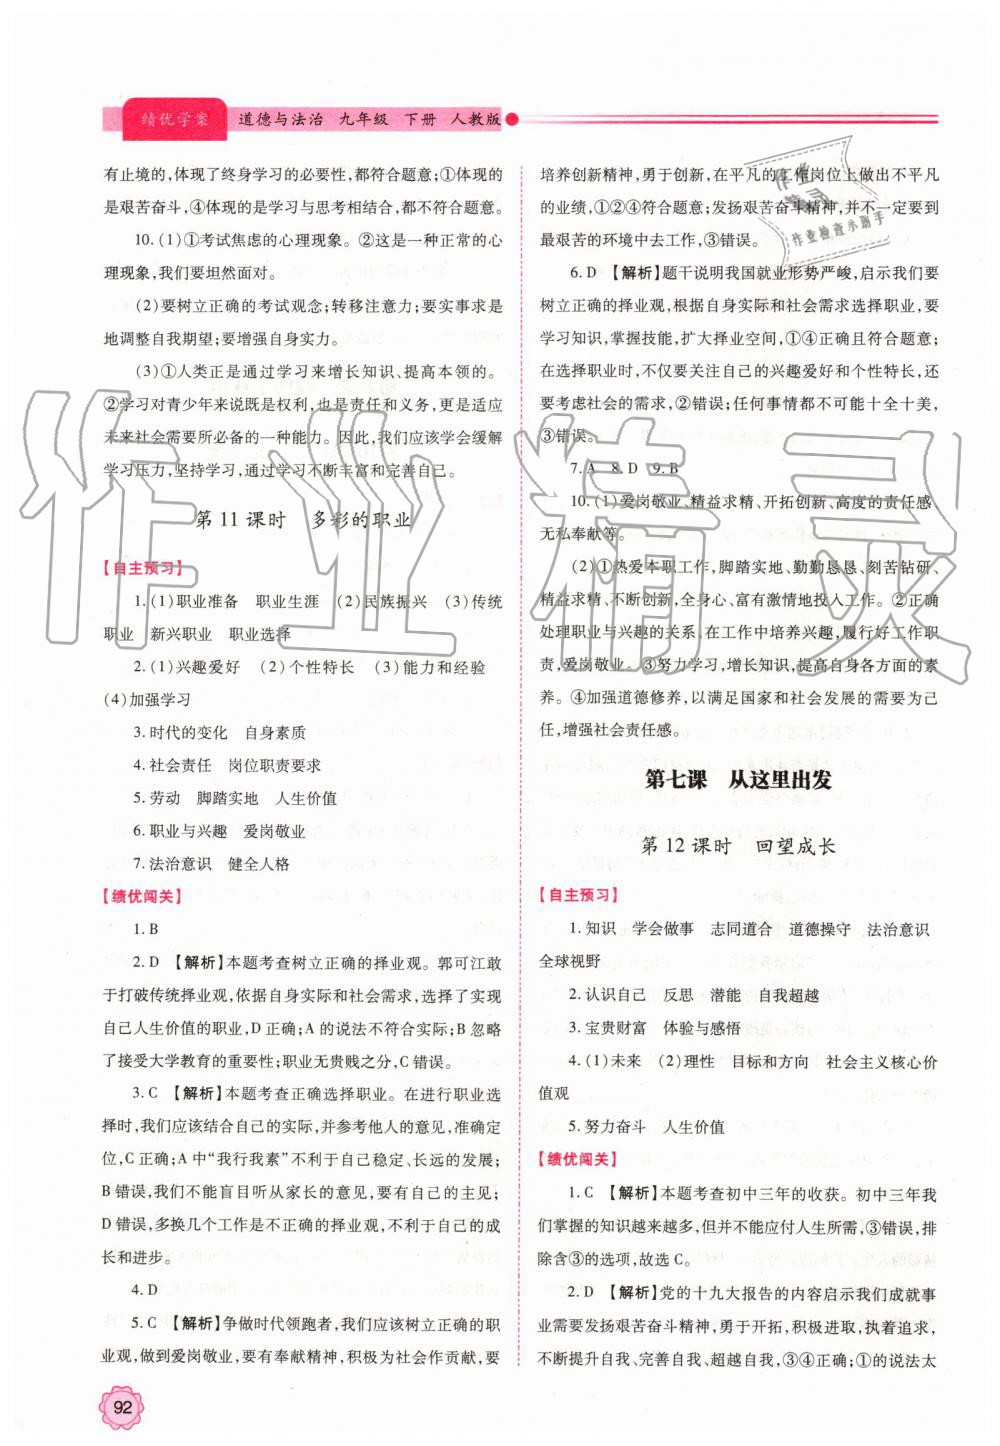 绩优学案 道德与法治 九年级 下册 人教版
有止境的,体现了终身学习的必要性,都符合题意;①体现的
是艰苦奋斗,④体现的是学习与思考相结合,都不符合题意。
10.(1)①考试焦虑的心理现象。②这是一种正常的心
理现象,我们要坦然面对。
(2)要树立正确的考试观念;转移注意力;要实事求是
地调整自我期望;要增强自身实力。
(3)①人类正是通过学习来增长知识、提高本领的。
②学习对青少年来说既是权利,也是责任和义务,更是适应
未来社会需要所必备的一种能力。因此,我们应该学会缓解
学习压力,坚持学习,通过学习不断丰富和完善自己。
第 11 课时 多彩的职业
【自主预习】
1.(1)职业准备 职业生涯 (2)民族振兴 (3)传统
职业 新兴职业 职业选择
2.(1)兴趣爱好 (2)个性特长 (3)能力和经验
(4)加强学习
3.时代的变化 自身素质
4.社会责任 岗位职责要求
5.劳动 脚踏实地 人生价值
6.职业与兴趣 爱岗敬业
7.法治意识 健全人格
【绩优闯关】
1.B
2.D 【解析】本题考查树立正确的择业观。郭可江敢
于打破传统择业观,依据自身实际和社会需求,选择了实现
自己人生价值的职业,D正确;A的说法不符合实际;B忽略
了接受大学教育的重要性;职业无贵贱之分,C错误。
3.C 【解析】本题考查正确选择职业。在进行职业选
择时,我们应该结合自己的实际,并参考他人的意见,准确定
位,C正确;A中“我行我素”不利于自己稳定、长远的发展;
B错误,我们不能盲目听从家长的意见,要有自己的主见;
D错误,多换几个工作是不正确的择业观,不利于自己的成
长和进步。
4.D
5.C 【解析】争做时代领跑者,我们应该树立正确的职
业观,做到爱岗敬业,要有奉献精神,积极为社会作贡献,要
92
培养创新精神,勇于创新,在平凡的工作岗位上做出不平凡
的业绩,①②④符合题意;发扬艰苦奋斗精神,并不一定要到
最艰苦的环境中去工作,③错误。
6.D 【解析】题干说明我国就业形势严峻,启示我们要
树立正确的择业观,根据自身实际和社会需求选择职业,要
学习知识,掌握技能,扩大择业空间,①④正确且符合题意;
在选择职业时,不仅要关注自己的兴趣爱好和个性特长,还
要考虑社会的需求,②错误;任何事情都不可能十全十美,
③错误。
7.A 8.D 9.B
10.(1)爱岗敬业、精益求精、开拓创新、高度的责任感、
无私奉献等。
(2)①热爱本职工作,脚踏实地、勤勤恳恳、刻苦钻研、
精益求精、不断创新,全身心、富有激情地投入工作。②正确
处理职业与兴趣的关系,在工作中培养兴趣,履行好工作职
责,爱岗敬业。③努力学习,增长知识,提高自身各方面的素
养。④加强道德修养,以满足国家和社会发展的需要为己
任,增强社会责任感。
第七课 从这里出发
第 12 课时 回望成长
【自主预习】
1.知识 学会做事 志同道合 道德操守 法治意识
全球视野
2.认识自己 反思 潜能 自我超越
3.宝贵财富 体验与感悟
4.(1)未来 (2)理性 目标和方向 社会主义核心价
值观
5.努力奋斗 人生价值
【绩优闯关】
1.C 【解析】本题考查初中三年的收获。初中三年我
们掌握的知识越来越多,但并不能应付人生所需,③错误,排
除含③的选项,故选C。
2.D 【解析】党的十九大报告的内容启示我们成就事
业需要发扬艰苦奋斗精神,勇于开拓,积极进取,执着追求,
不断提升自我、完善自我、超越自我,③④正确;①的说法太
作业精灵
作业检查小助手